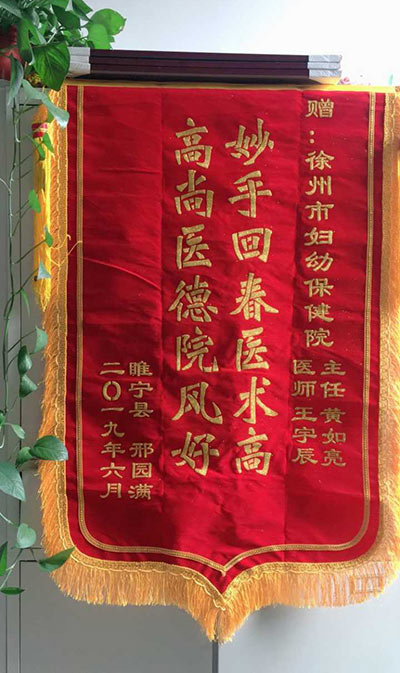 赠：徐州市妇幼保健院
主任 黄如亮
医师 王宇辰
妙手回春医术高
高尚医德院风好
睢宁县 邢园满
二〇一九年六月